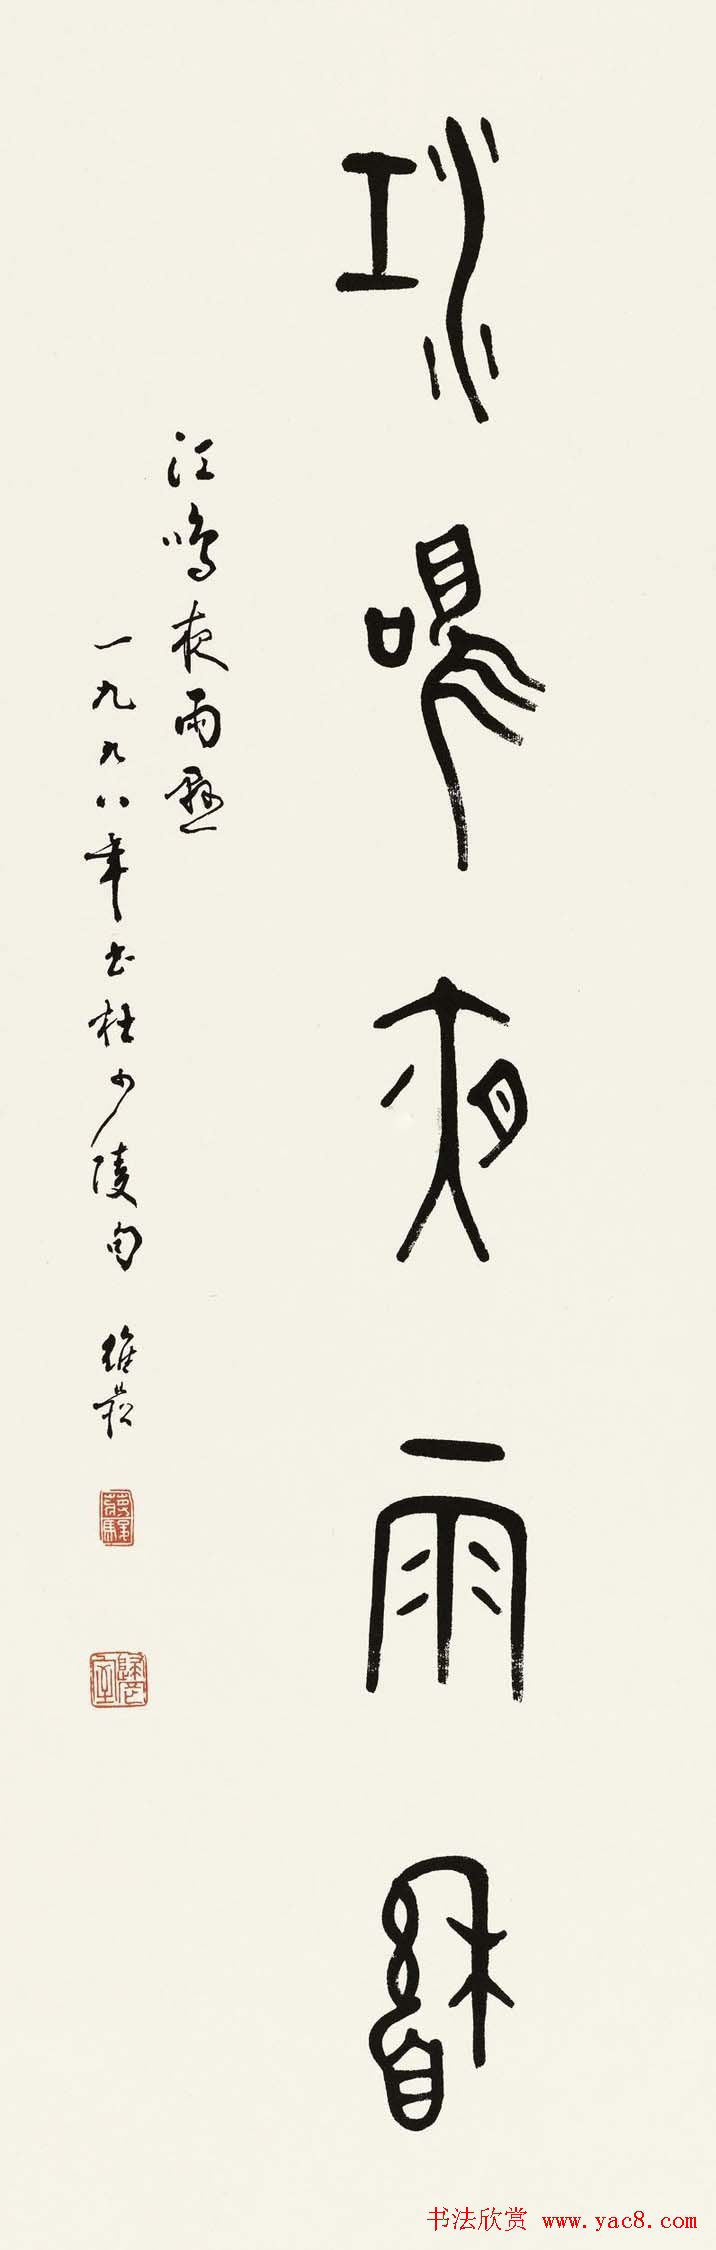 江鳴夜雨懸
江鳴夜雨懸
一九九八年書杜少陵句 維崧
书法欣赏 www.yac8.com